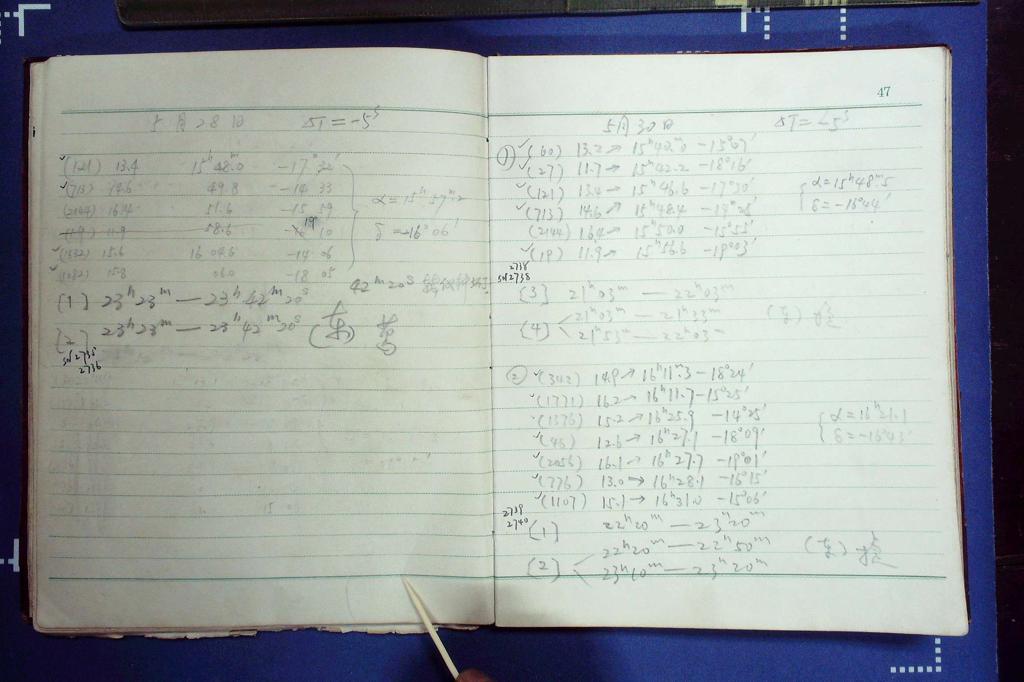 5月28日 ΔT=-5ˢ
✓(121) 13.4 15ʰ48.0ᵐ -17°32′
✓(713) 14.6 49.8 -14 33
(2144) 16.4 51.6 -15 59
(119) 11.9 58.6 19 10
✓(1032) 15.8 06.0 -18 05
δ=-16°06′
[1] 23ʰ23ᵐ — 23ʰ42ᵐ20ˢ 42ᵐ20ˢ
[2] 23ʰ23ᵐ — 23ʰ42ᵐ20ˢ (东)
SN2735
2736
47
5月30日 ΔT=-5ˢ
① ✓(60) 13.2→ 15ʰ40.0ᵐ -15°07′
✓(27) 11.7→ 15ʰ42.2 -18°16′
✓(121) 13.4→ 15ʰ46.6 -17°30′
✓(713) 14.6→ 15ʰ48.4 -14°25′
(2144) 16.4→ 15ʰ50.0 -15°55′
✓(19) 11.9→ 15ʰ56.6 -19°03′
α=15ʰ48ᵐ.5
δ=-16°44′
2738
SN2738
[3] 21ʰ03ᵐ — 22ʰ03ᵐ
[4] 21ʰ03ᵐ — 21ʰ33ᵐ
21ʰ53ᵐ — 22ʰ03ᵐ
② ✓(342) 14.9→ 16ʰ11ᵐ.3 -18°24′
✓(1771) 16.2→ 16ʰ11.7 -15°25′
(1376) 15.2→ 16ʰ25.9 -14°25′
✓(46) 12.6→ 16ʰ27.1 -18°09′
✓(2056) 16.1→ 16ʰ27.7 -19°01′
✓(776) 13.0→ 16ʰ28.1 -16°15′
✓(1107) 15.1→ 16ʰ31.0 -15°06′
α=16ʰ21.1
δ=-16°43′
2739
2740
[1] 22ʰ20ᵐ — 23ʰ20ᵐ
[2] 22ʰ20ᵐ — 22ʰ50ᵐ
23ʰ10ᵐ — 23ʰ20ᵐ